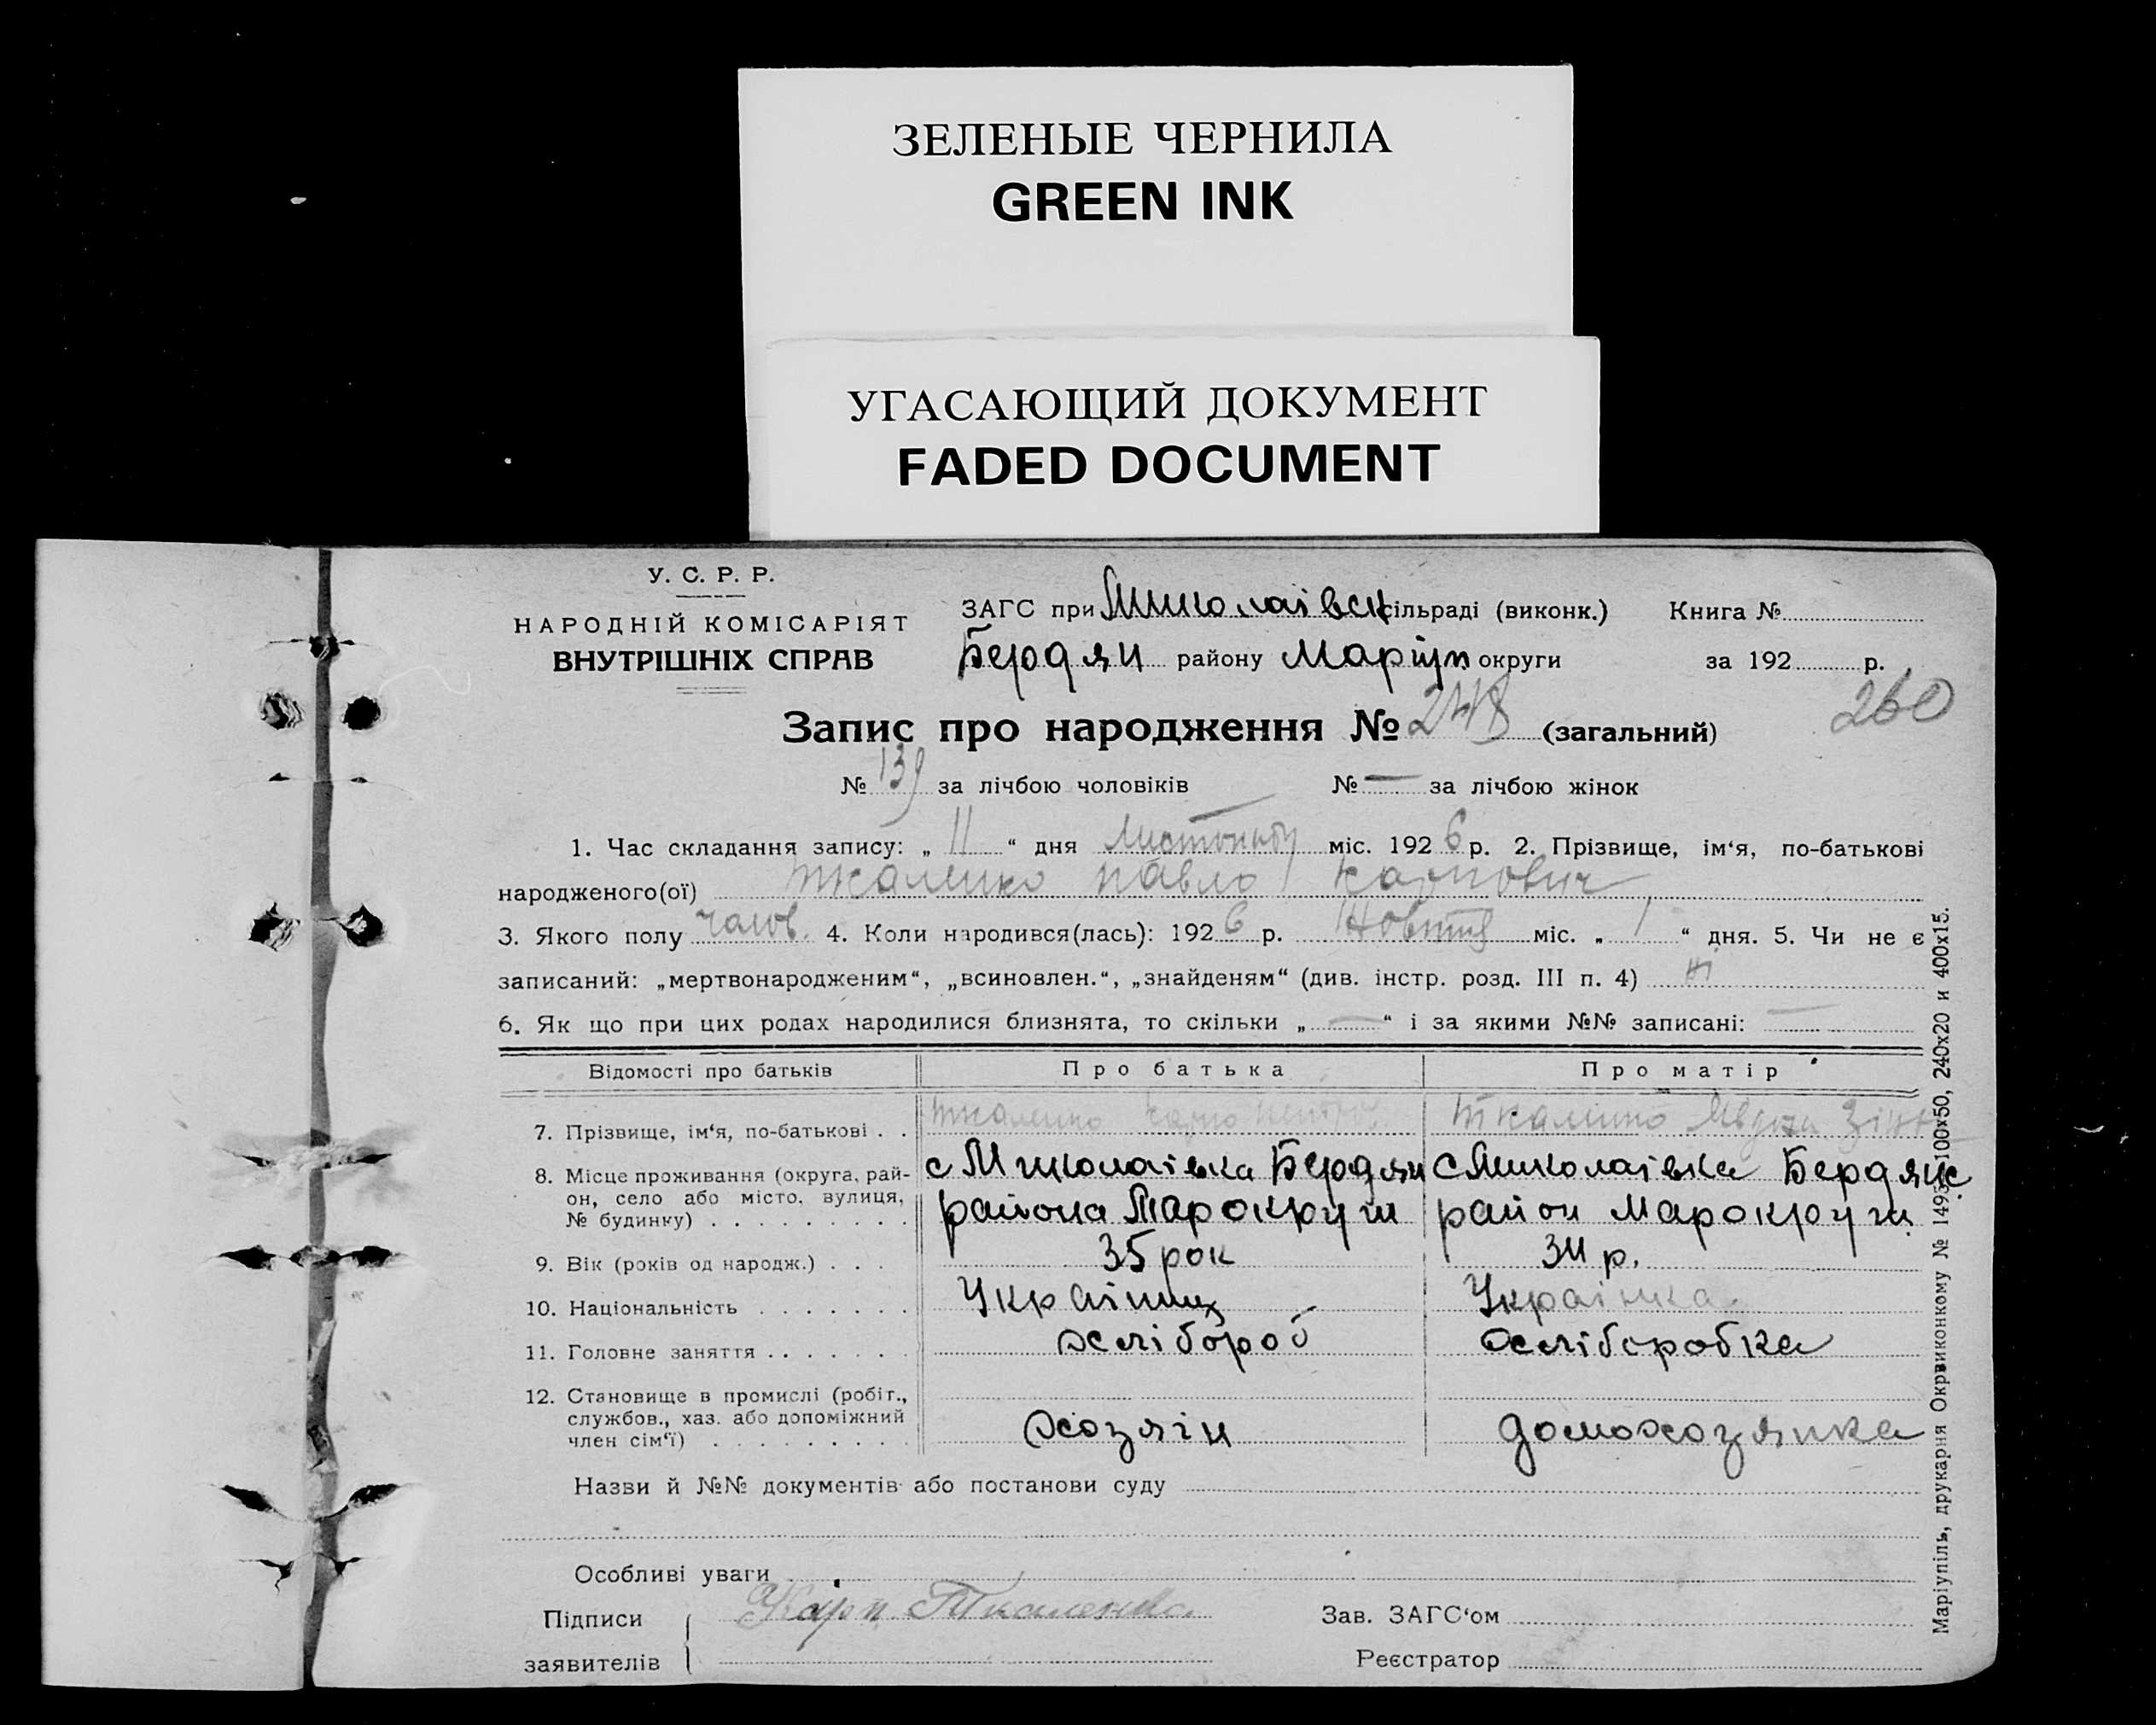 ЗЕЛЕНЫЕ ЧЕРНИЛА
GREEN INK
УГАСАЮЩИЙ ДОКУМЕНТ
FADED DOCUMENT
У. С. Р. Р.
НАРОДНІЙ КОМІСАРІЯТ
ВНУТРІШНІХ СПРАВ
ЗАГС при Миколаївск сільраді (виконк.) Книга №
Бердян району Маріуп округи за 192 р.
260
Запис про народження № 248 (загальний)
№ 139 за лічбою чоловіків № — за лічбою жінок
1. Час складання запису: „ 11 “ дня Листопаду міс. 1926 р. 2. Прізвище, ім‘я, по-батькові
народженого(ої) Ткаленко Павло Карпович
3. Якого полу чолов. 4. Коли народився(лась): 1926 р. Жовтня міс. „ 1 “ дня. 5. Чи не є
записаний: „мертвонародженим“, „всиновлен.“, „знайденям“ (див. інстр. розд. III п. 4) ні
6. Як що при цих родах народилися близнята, то скільки „ — “ і за якими №№ записані: —
Відомості про батьків Про батька Про матір
7. Прізвище, ім‘я, по-батькові . . Ткаленко Карпо Ткаленко Явдоха
8. Місце проживання (округа, рай- с Миколаівка Бердян с Миколаівка Бердянс
он, село або місто, вулиця, района Марокруги район Марокруги
№ будинку)
9. Вік (років од народж.) . . . 35 рок 34 р.
10. Національність Українец Українка
11. Головне заняття хлібороб хліборобка
12. Становище в промислі (робіт.,
службов., хаз. або допоміжний хозяін домохозяика
член сім‘ї)
Назви й №№ документів або постанови суду
Особливі уваги
Підписи Карп Ткаленко Зав. ЗАГС‘ом
заявителів Реєстратор
Маріупіль, друкарня Окрвиконкому № 1493 100x50, 240x20 и 400x15.